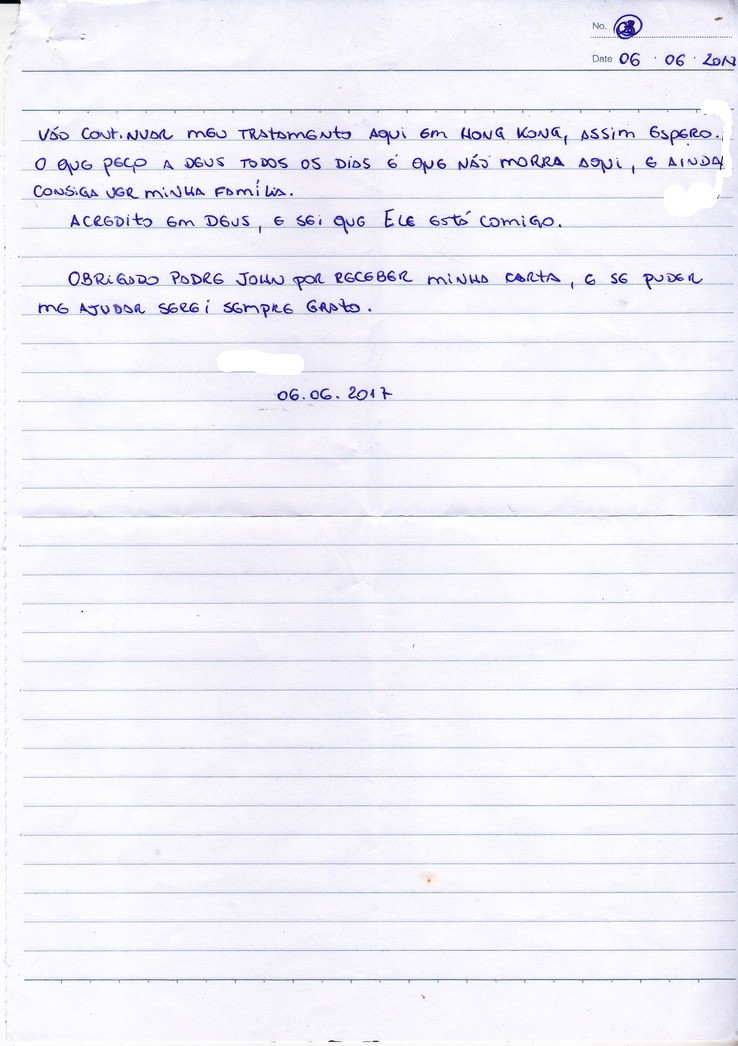 No. 03
Date 06 · 06 · 2017
VÃO CONTINUAR MEU TRATAMENTO AQUI EM HONG KONG, ASSIM ESPERO.
O QUE PEÇO A DEUS TODOS OS DIAS É QUE NÃO MORRA AQUI, E AINDA
CONSIGA VER MINHA FAMÍLIA.
ACREDITO EM DEUS, E SEI QUE ELE ESTÁ COMIGO.
OBRIGADO PADRE JOHN POR RECEBER MINHA CARTA, E SE PUDER
ME AJUDAR SEREI SEMPRE GRATO.
06.06.2017